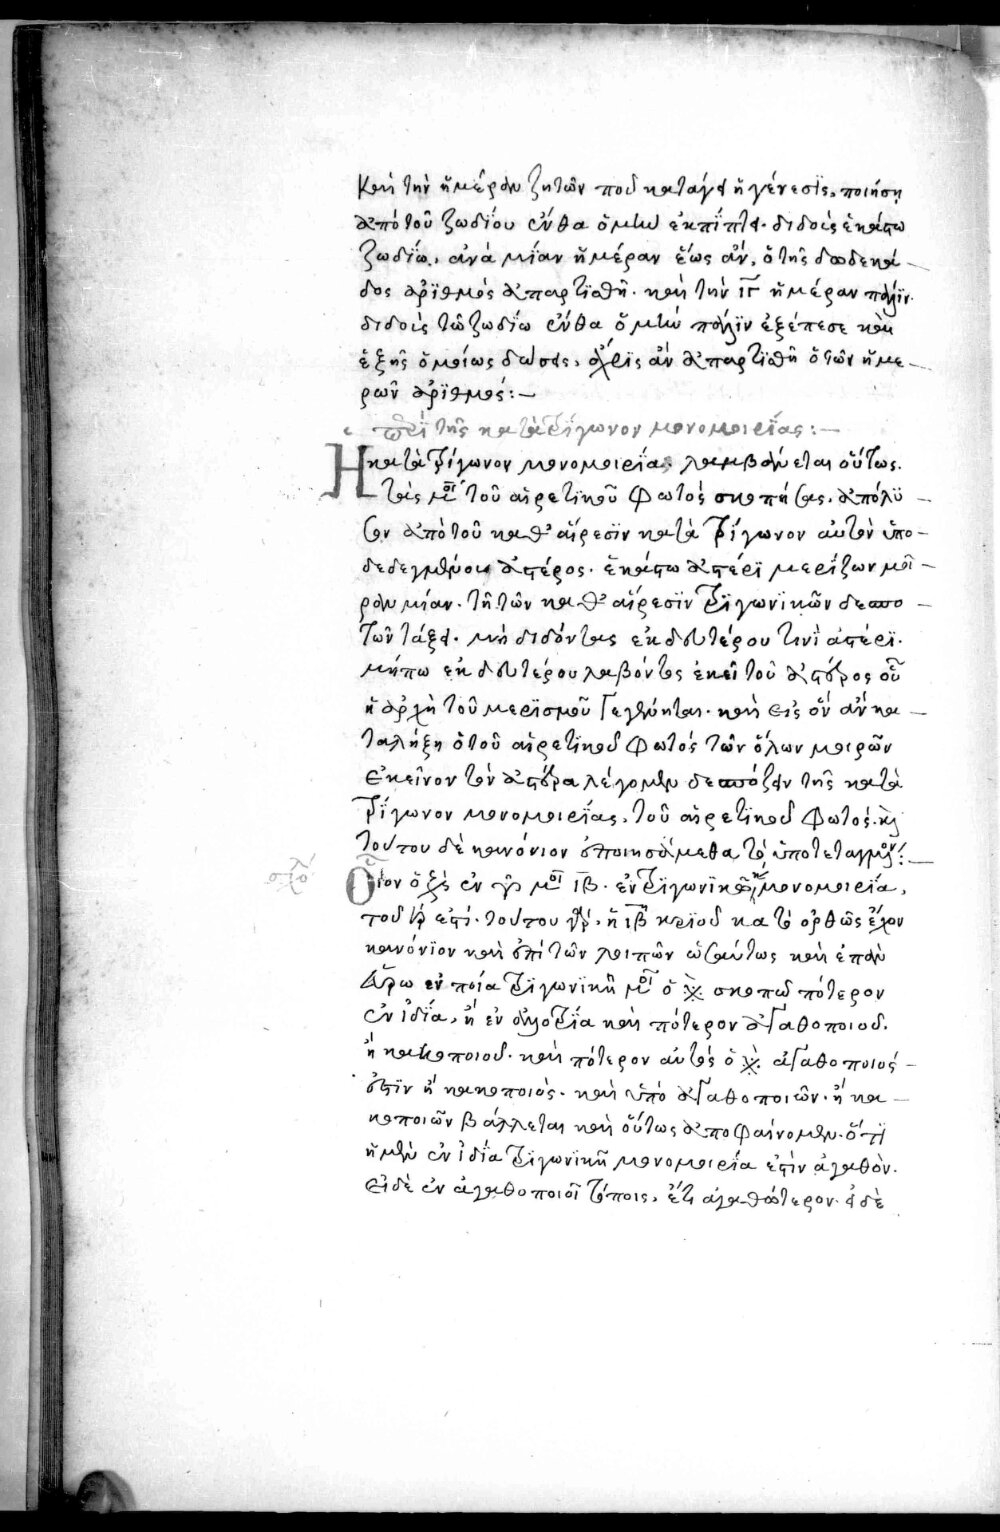 καὶ τὴν ἡμέραν ζητῶν ποῦ κατάγει ἡ γένεσις, ποιήσῃ
ἀπὸ τοῦ ζωδίου ἔνθα ὁ μὴν ἐκπίπτει. διδοὺς ἑκάστω
ζωδίω, ἀνὰ μίαν ἡμέραν ἕως ἂν, ὁ τῆς δωδεκά-
δος ἀριθμὸς ἀπαρτισθῆ. καὶ τὴν ιγ ἡμέραν πάλιν.
διδοὺς τῶ ζωδίω ἔνθα ὁ μὴν πάλιν ἐξέπεσε καὶ
ἑξῆς ὁμοίως δώσεις, ἄχρις ἂν ἀπαρτισθῆ ὁ τῶν ἡμε-
ρῶν ἀριθμός:-
περὶ τῆς κατὰ τρίγωνον μονομοιρίας:-
Ἡ κατὰ τρίγωνον μονομοιρία, λαμβάνεται οὕτως.
τὰς μοι τοῦ αἱρετικοῦ φωτὸς σκοπήσας, ἀπόλυ-
σον ἀπὸ τοῦ καθ αἵρεσιν κατὰ τρίγωνον αὐτὸν ὑπο-
δεδεγμένου ἀστέρος. ἑκάστω ἀστέρι μερίζων μοῖ-
ραν μίαν. τῆ τῶν καθ αἵρεσιν τριγωνικῶν δεσπο-
τῶν τάξει. μὴ διδόντες ἐκ δευτέρου τινὶ ἀστέρι.
μήπω ἐκ δευτέρου λαβόντος ἐκείνου τοῦ ἀστέρος οὗ
ἡ ἀρχὴ τοῦ μερισμοῦ γεγένηται. καὶ εἰς ὃν ἂν κα-
ταλήξη ὁ τοῦ αἱρετικοῦ φωτὸς τῶν ὅλων μοιρῶν
ἐκεῖνον τὸν ἀστέρα λέγομεν δεσπόζειν τῆς κατὰ
τρίγωνον μονομοιρίας, τοῦ αἱρετικοῦ φωτός. καὶ
τούτου δὲ κανόνιον ἐποιησάμεθα τὸ ὑποτεταγμένον:-
σχο
Οἷον ὁ ἐν μοι ιβ. ἐν τριγωνικῆ μονομοιρία,
τοῦ ἐστί. τούτου ἡ ιβ κριοῦ κατὰ ὀρθῶς ἔχον
κανόνιον καὶ ἐπὶ τῶν λοιπῶν ὡσαύτως καὶ ἐπὰν
εὕρω ἐν ποία τριγωνικῆ μοι ὁ σκοπῶ πότερον
ἐν ἰδία, ἢ ἐν ἀλλοτρία καὶ πότερον ἀγαθοποιοῦ.
ἢ κακοποιοῦ. καὶ πότερον αὐτὸς ὁ ἀγαθοποιός-
ἐστιν ἢ κακοποιὸς. καὶ ὑπὸ ἀγαθοποιῶν. ἢ κα-
κοποιῶν βάλλεται καὶ οὕτως ἀποφαίνομαι. ὅτι
ἡ μὲν ἐν ἰδία τριγωνικῆ μονομοιρία ἐστὶν ἀγαθὸν.
εἰ δὲ ἐν ἀγαθοποιοῖς τόποις, ἔτι ἀγαθώτερον. εἰ δὲ